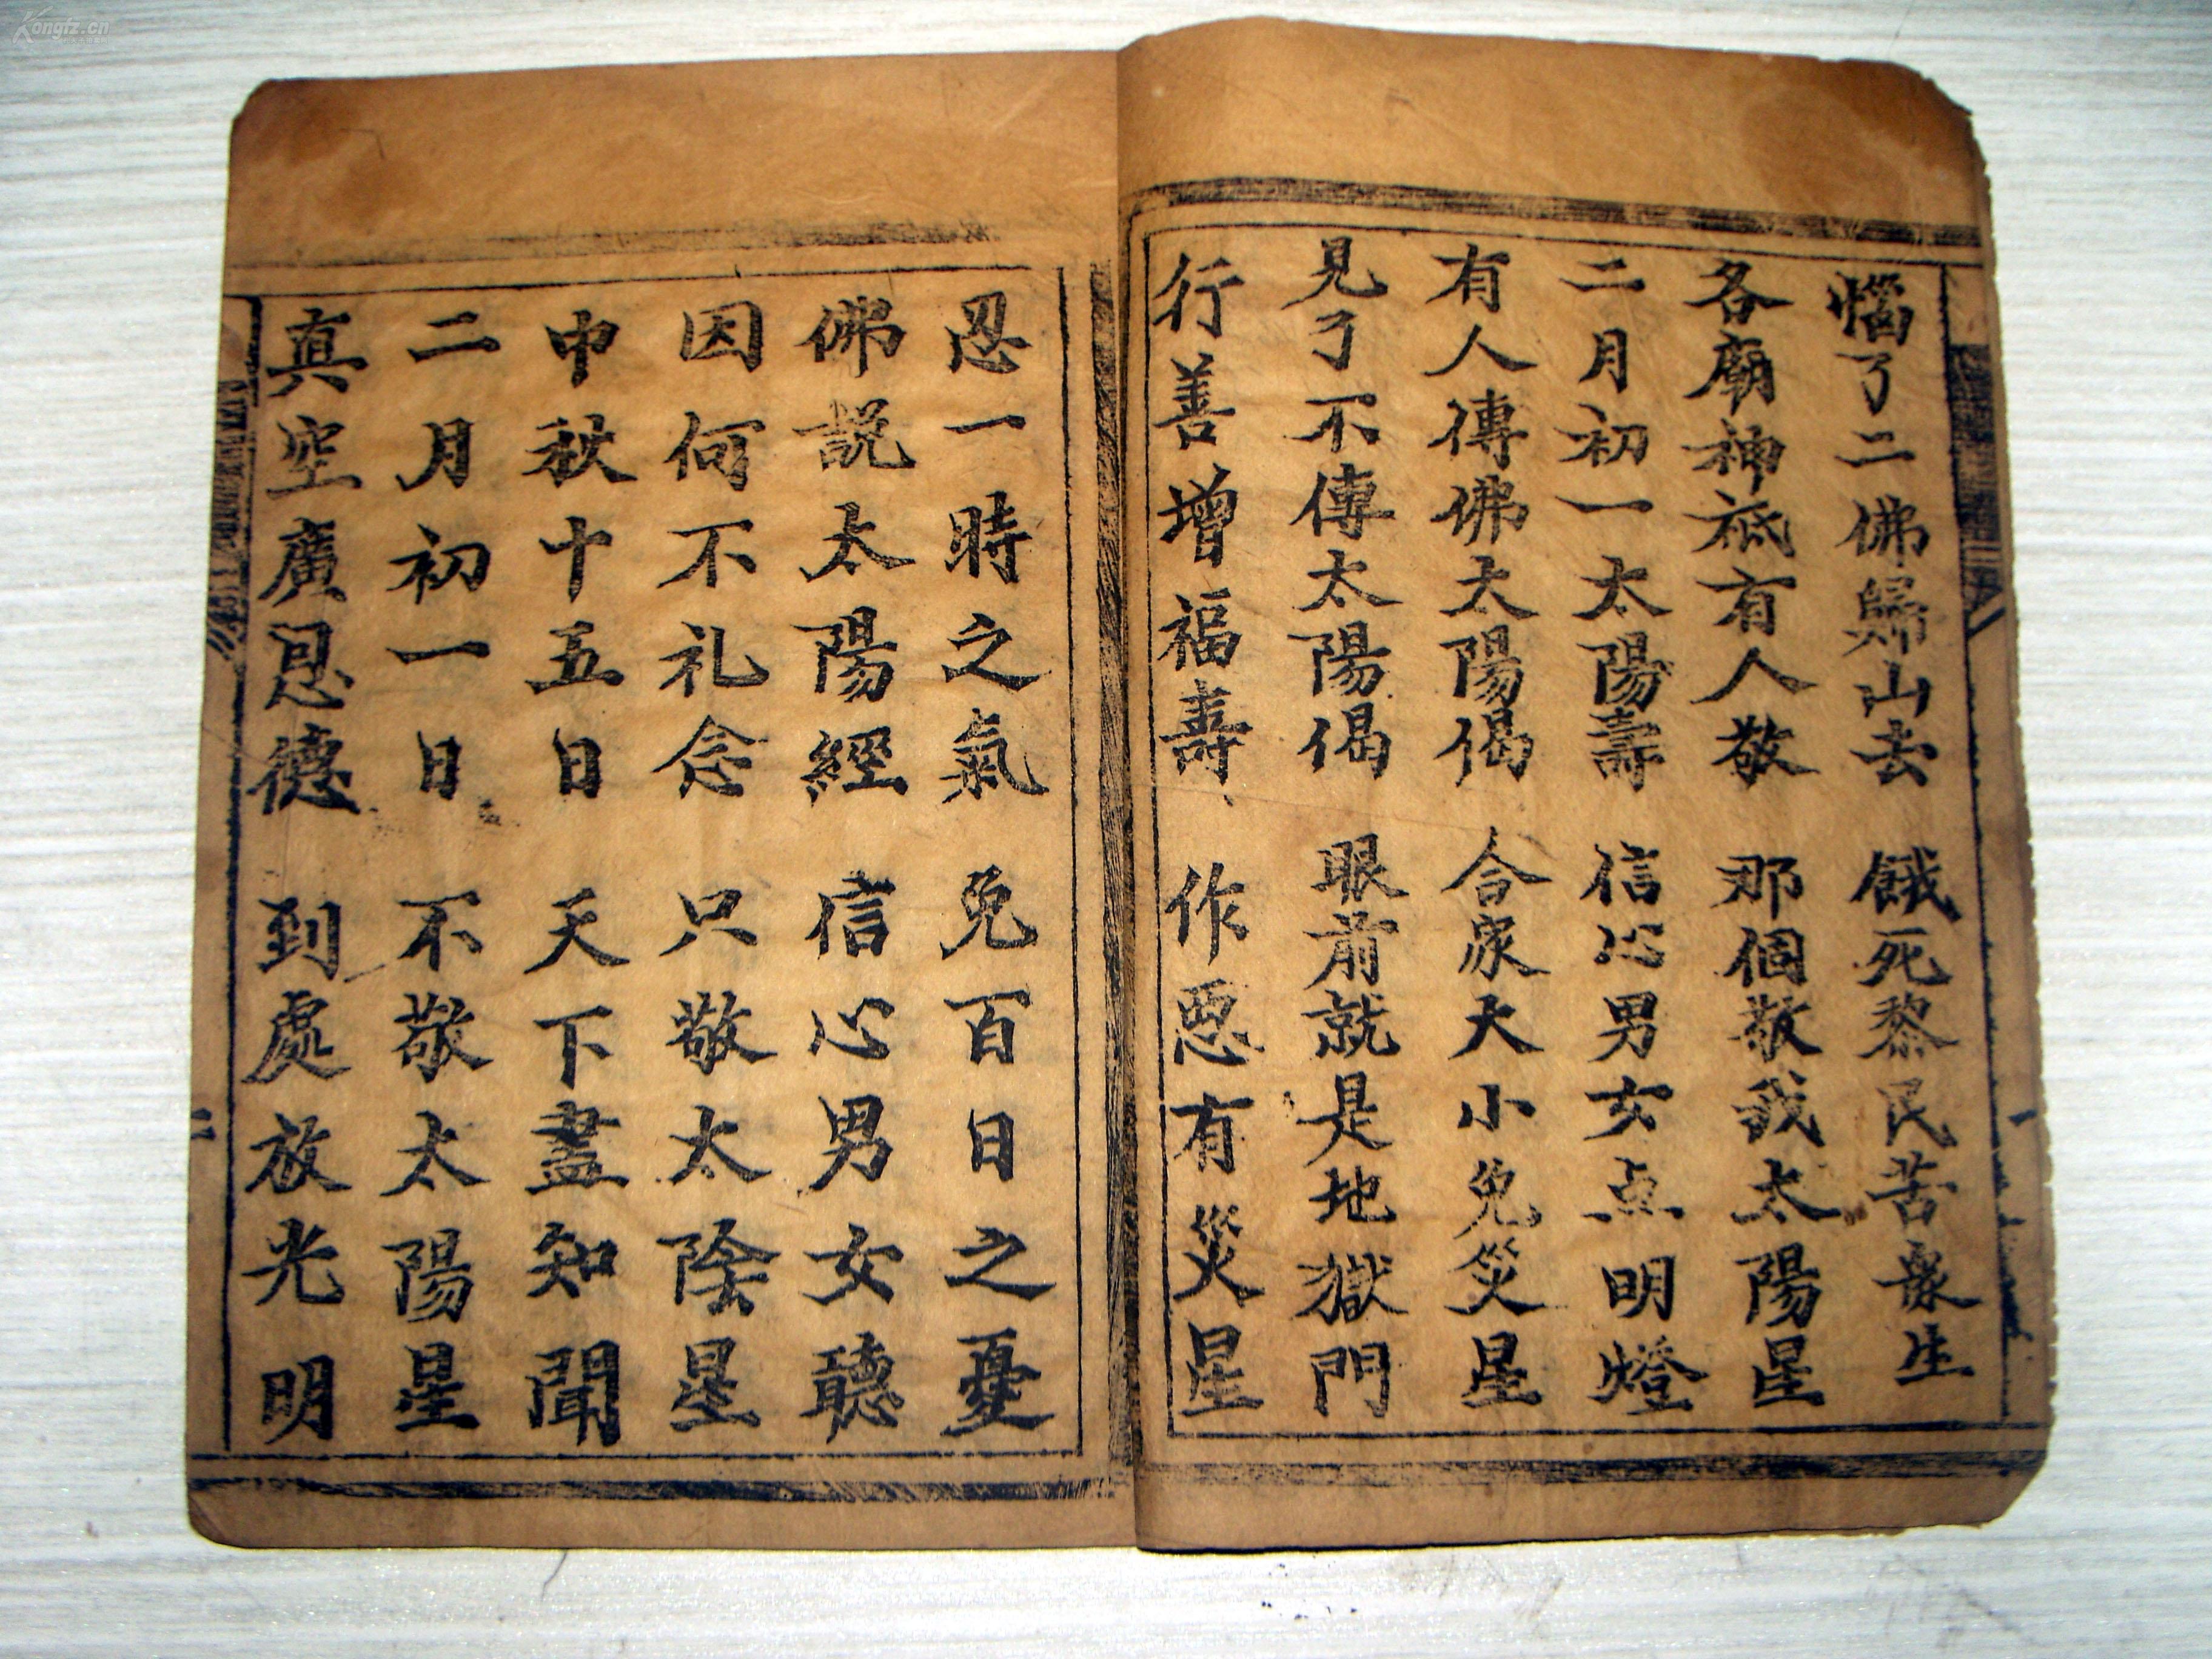 Kongfz.cn
惱了二佛歸山去 餓死黎民苦衆生
各廟神祗有人敬 那個敬我太陽星
二月初一太陽壽 信心男女点明燈
有人傳佛太陽偈 合家大小免災星
見了不傳太陽偈 眼前就是地獄門
行善增福壽 作惡有災星
一
忍一時之氣 免百日之憂
佛説太陽經 信心男女聽
因何不礼念 只敬太陰星
中秋十五日 天下盡知聞
二月初一日 不敬太陽星
真空廣恩德 到處放光明
二